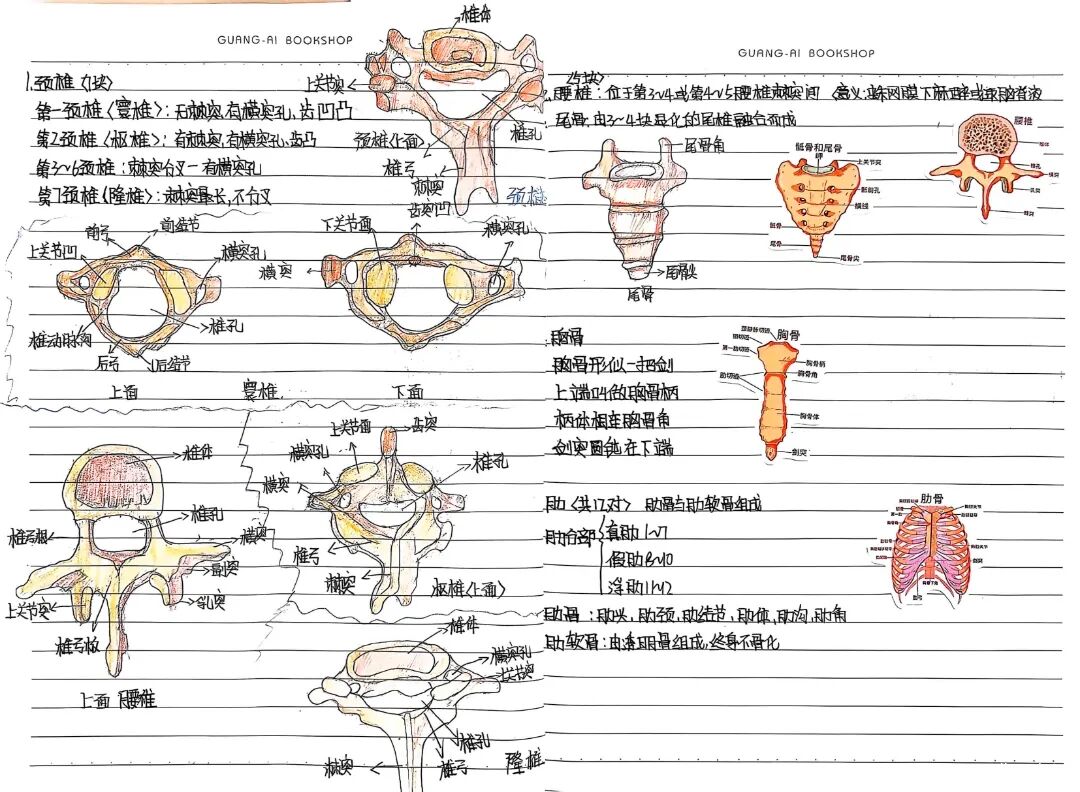 GUANG-AI BOOKSHOP
1.颈椎〈7块〉
第一颈椎〈寰椎〉：无棘突,有横突孔,齿凹凸
第2颈椎〈枢椎〉：有棘突,有横突孔,齿凸
第3~6颈椎：棘突分叉一有横突孔
第7颈椎〈隆椎〉：棘突最长,不分叉
椎体
上关节突
椎孔
颈椎〈上面〉
椎弓
棘突
颈椎
齿突凹
前弓
前结节
上关节凹
横突孔
椎动脉沟
椎孔
后弓
后结节
上面
寰椎
下关节面
横突孔
横突
下面
椎体
椎孔
椎弓根
横突
副突
上关节突
乳突
椎弓板
上面 腰椎
上关节面
齿突
横突孔
椎孔
横突
椎弓
棘突
枢椎〈上面〉
椎体
横突孔
上关节突
椎孔
椎弓
棘突
隆椎
GUANG-AI BOOKSHOP
〈5块〉
腰椎：位于第3~4或第4~5腰椎棘突间
尾骨：由3~4块退化的尾椎融合而成
尾骨角
尾骨尖
尾骨
骶骨和尾骨
岬
上关节突
骶前孔
横线
骶骨
尾骨
尾骨尖
腰椎
椎体
椎孔
横突
乳突
棘突
胸骨
胸骨形似一把剑
上端叫做胸骨柄
柄体相连胸骨角
剑突圆钝在下端
胸骨
颈静脉切迹
锁切迹
第一肋切迹
胸骨柄
胸骨角
肋切迹
胸骨体
剑突
肋〈共12对〉 肋骨与肋软骨组成
肋全部
真肋1~7
假肋8~10
浮肋11~12
肋骨
肋骨：肋头,肋颈,肋结节,肋体,肋沟,肋角
肋软骨：由透明骨组成,终身不骨化